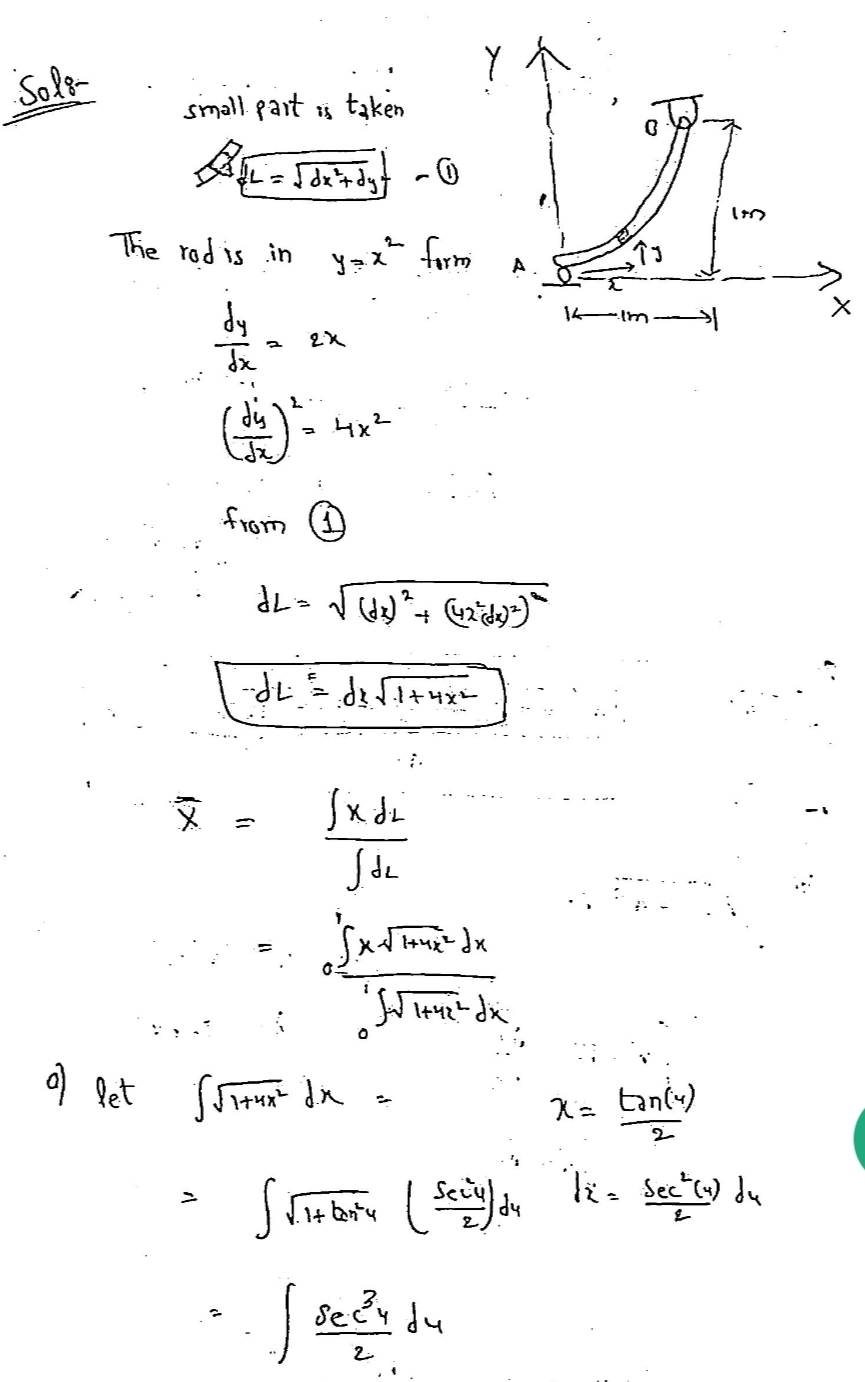 Sol:-
small part is taken
dL = √dx²+dy² - ①
The rod is in y=x² form
dy/dx = 2x
(dy/dx)² = 4x²
from ①
dL = √(dx)² + (4x²(dx)²)
dL = dx √1+4x²
x̄ = ∫x dL / ∫dL
= ₀∫¹ x√1+4x² dx / ₀∫¹ √1+4x² dx
a) let ∫√1+4x² dx = x = tan(u)/2
= ∫√1+tan²u (sec²u/2) du dx = sec²(u)/2 du
= ∫ sec³u/2 du
Y
B
1m
A
x
y
1m
X